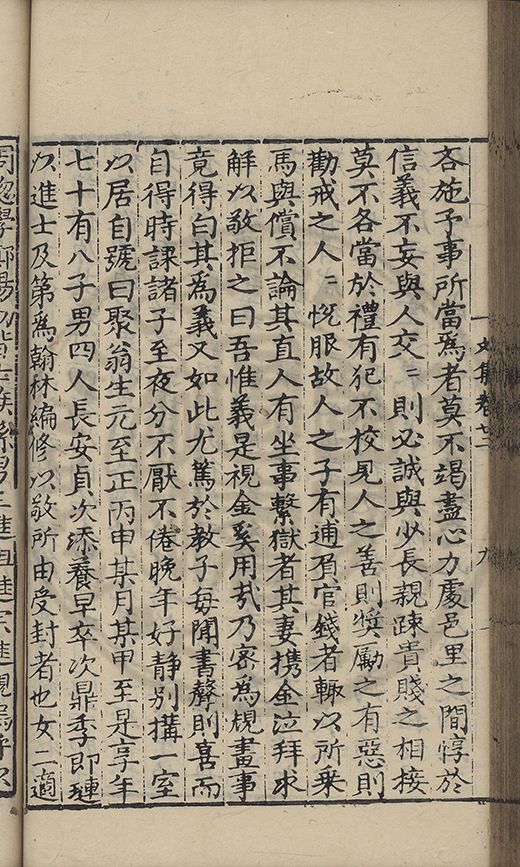 文集卷廿二
九
吝施予事所當爲者莫不竭盡心力處邑里之間惇於
信義不妄與人交〻則必誠與少長親疎貴賤之相接
莫不各當於禮有犯不校見人之善則奬勵之有惡則
勸戒之人〻悅服故人之子有逋負官錢者輙以所乗
馬與償不論其直人有坐事繫獄者其妻携金泣拜求
解以敬拒之曰吾惟義是視金奚用㢤乃密爲規畫事
竟得白其爲義又如此尤篤於教子每聞書聲則喜而
自得時課諸子至夜分不厭不倦晚年好静别搆一室
以居自號曰聚翁生元至正丙申某月某甲至是享年
七十有八子男四人長安貞次添養早卒次鼎季即璉
以進士及第爲翰林編修以敬所由受封者也女二適